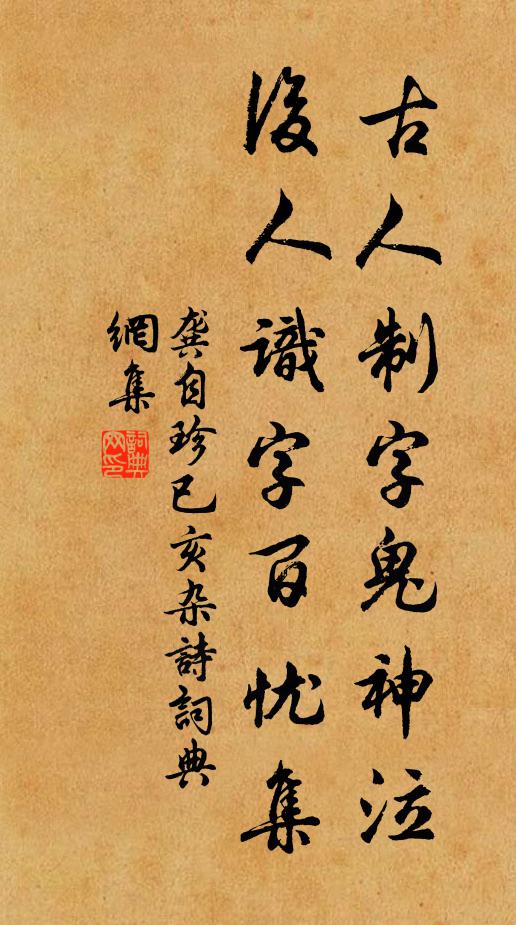 古人制字鬼神泣
後人識字百忧集
龚自珍己亥杂詩詞典
網集
詞典
网印